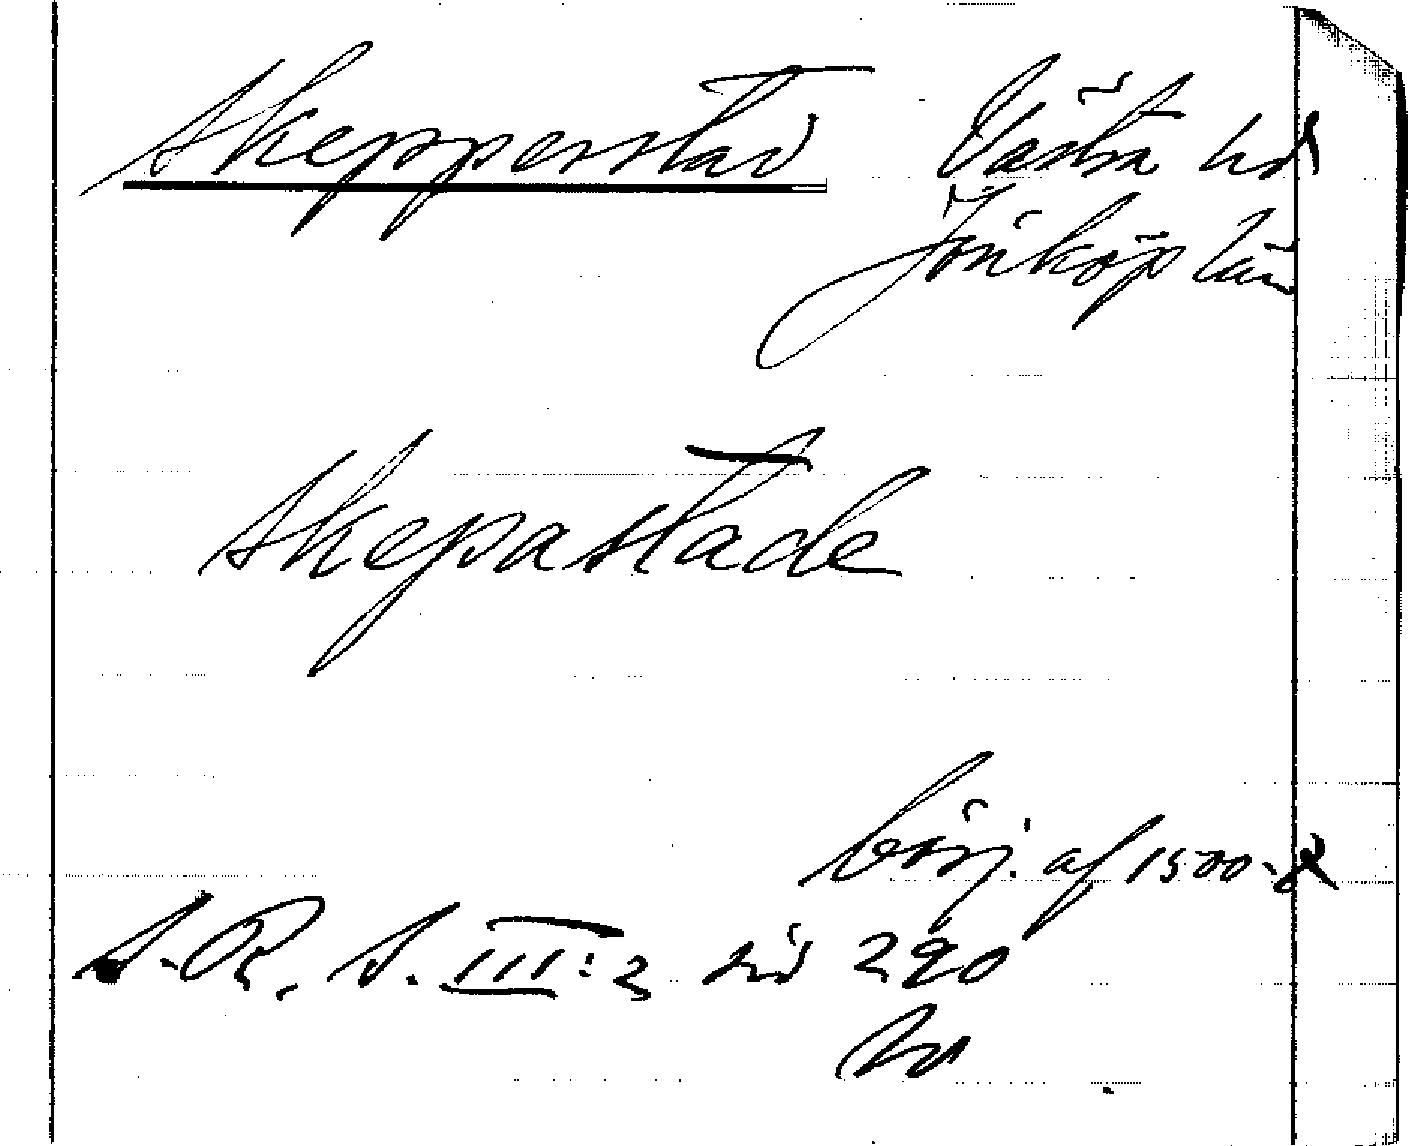 Skepperstad Västra hd
Jönköp län
Skepastade
börj. af 1500-t
S.R.S. III:2 sid 290